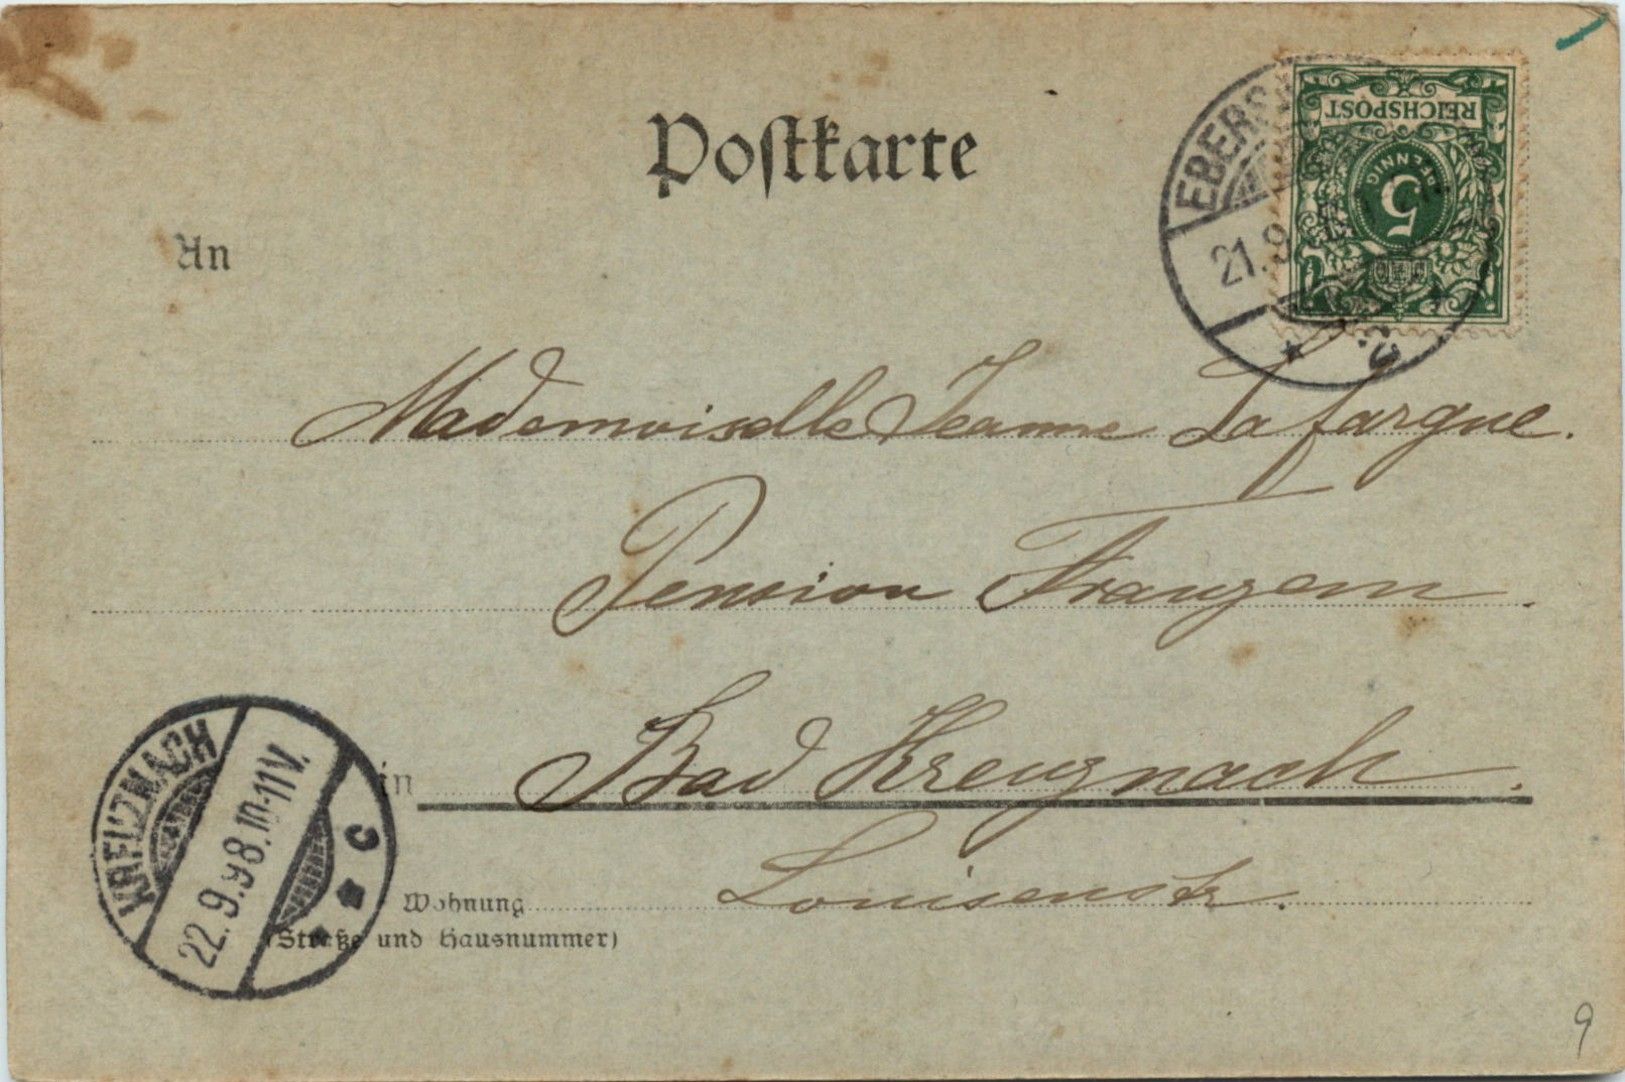 Postkarte
REICHSPOST
5
PFENNIG
21.9
An
Mademoiselle Jeanne Lafargue.
Pension Franzem.
in Bad Kreuznach.
Wohnung Louisenstr.
(Straße und Hausnummer)
KREUZNACH
22.9.98.10-11V.
C
9